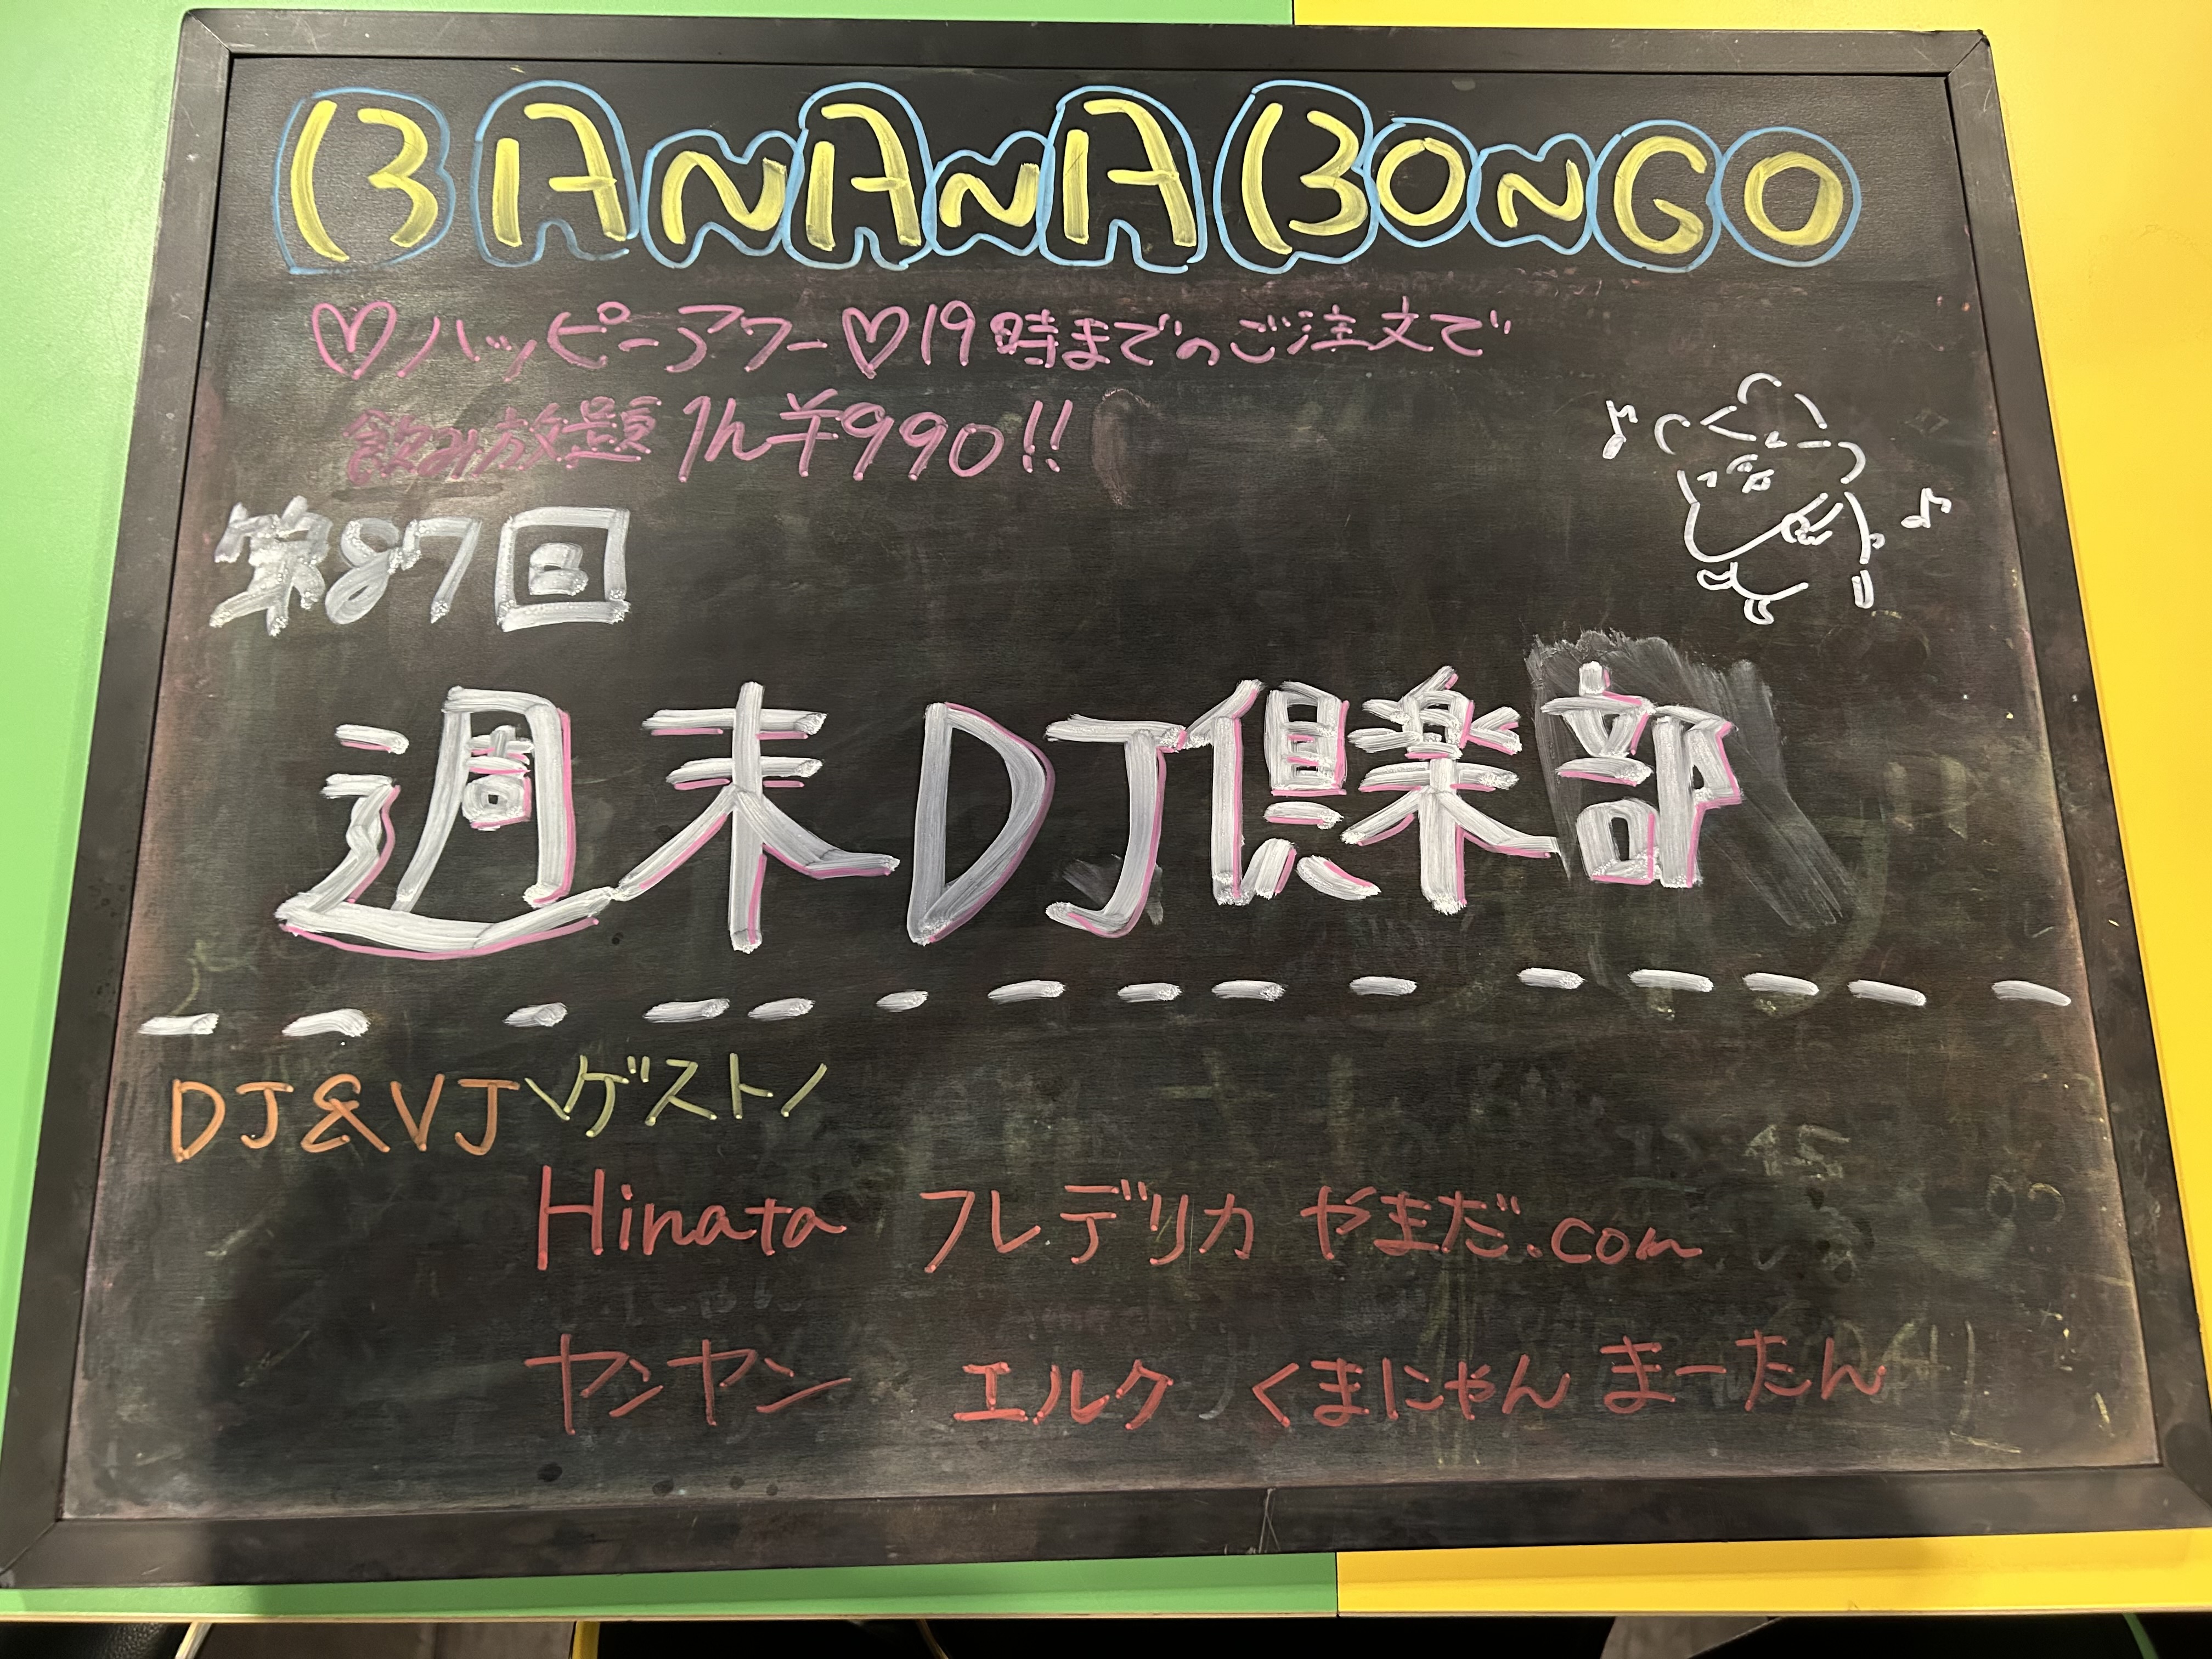 BANANA BONGO
♡ハッピーアワー♡19時までのご注文で
飲み放題 1h ¥990!!
第87回
週末DJ倶楽部
DJ&VJ \ゲスト/
Hinata フレデリカ やまだ.com
ヤンヤン エルク くまにゃん まーたん